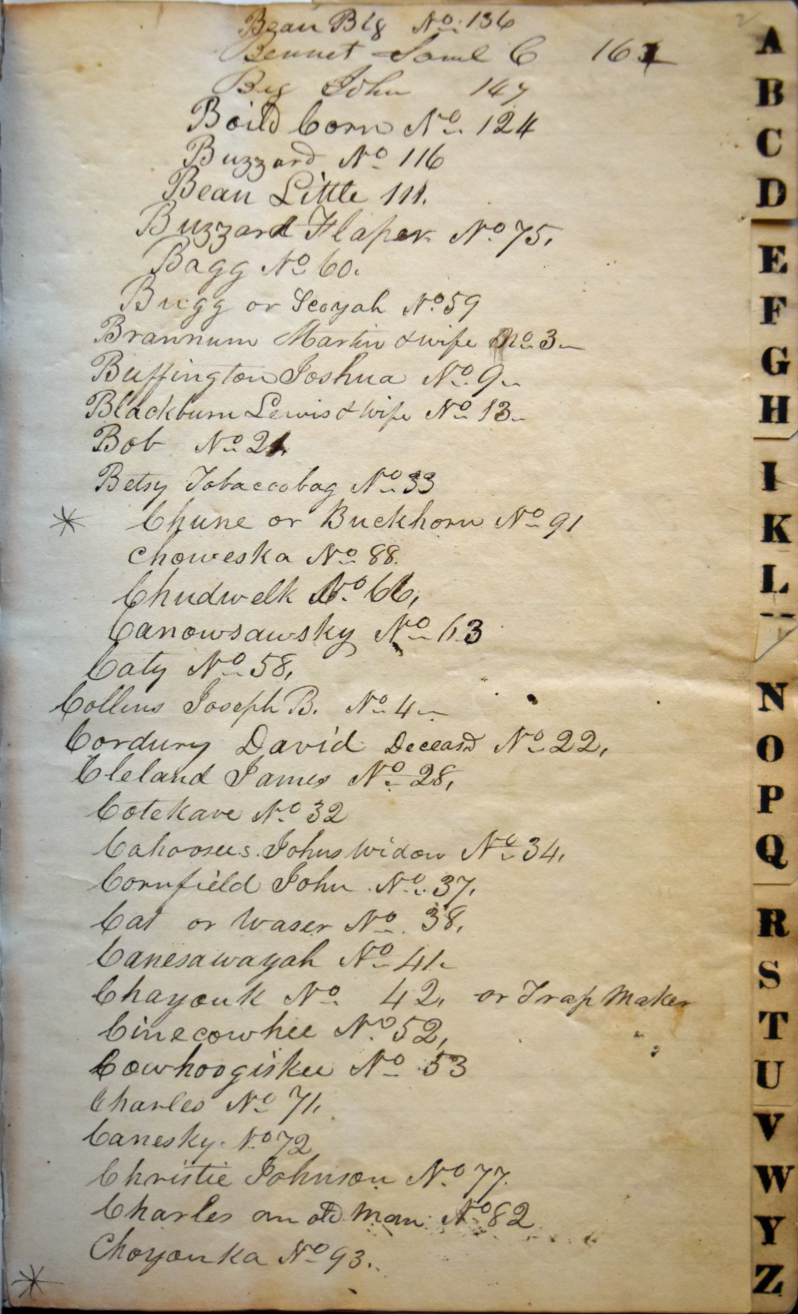 Bean Big No. 136
Bennet Saml C 161
Big John 147
Boild Corn No. 124
Buzzard No 116
Bean Little 111.
Buzzard Flaper No 75.
Bagg No 60.
Bugg or Seoyah No 59
Brannum Martin & wife No 3
Buffington Joshua No 9
Blackburn Lewis & wife No 13
Bob No 21
Betsy Tobaccobag No 33
* Chune or Buckhorn No 91
Choweska No 88
Chudwelk No 66,
Canowsawsky No 63
Caty No 58,
Collins Joseph B. No 4
Cordury David Deceasd No 22,
Cleland James No 28,
Cotekave No 32
Cahoosees Johns widow No 34,
Cornfield John No 37,
Cat or Waser No 38,
Canesawayah No 41
Chayouk No 42, or Trap Maker
Cinecowhee No 52,
Cowhoogiskee No 53
Charles No 71,
Canesky No 72
Christie Johnson No 77
Charles an old man No 82
Choyouka No 93.
*
A
B
C
D
E
F
G
H
I
K
L
N
O
P
Q
R
S
T
U
V
W
Y
Z